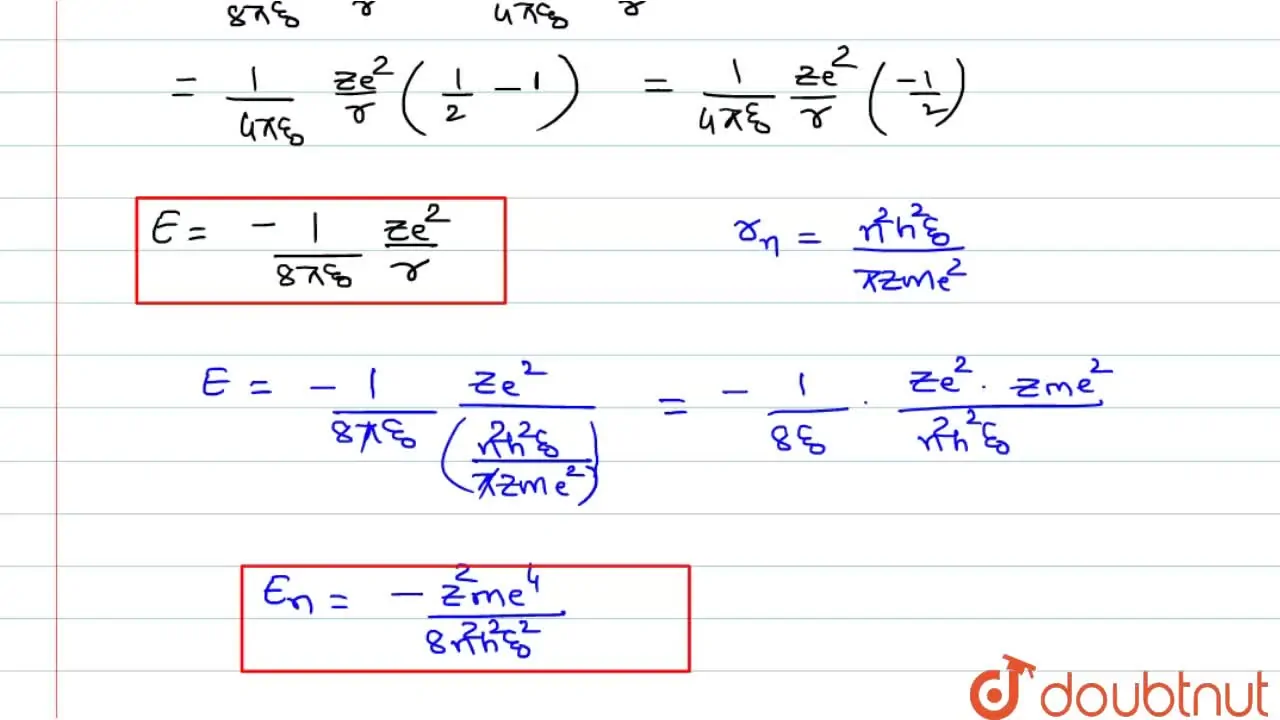 8πε₀ r 4πε₀ r
= 1/4πε₀ ze²/r (1/2 - 1) = 1/4πε₀ ze²/r (-1/2)
E = - 1/8πε₀ ze²/r
rₙ = n²h²ε₀/πzme²
E = - 1/8πε₀ ze²/(n²h²ε₀/πzme²) = - 1/8ε₀ · ze² · zme²/n²h²ε₀
Eₙ = - z²me⁴/8n²h²ε₀²
doubtnut